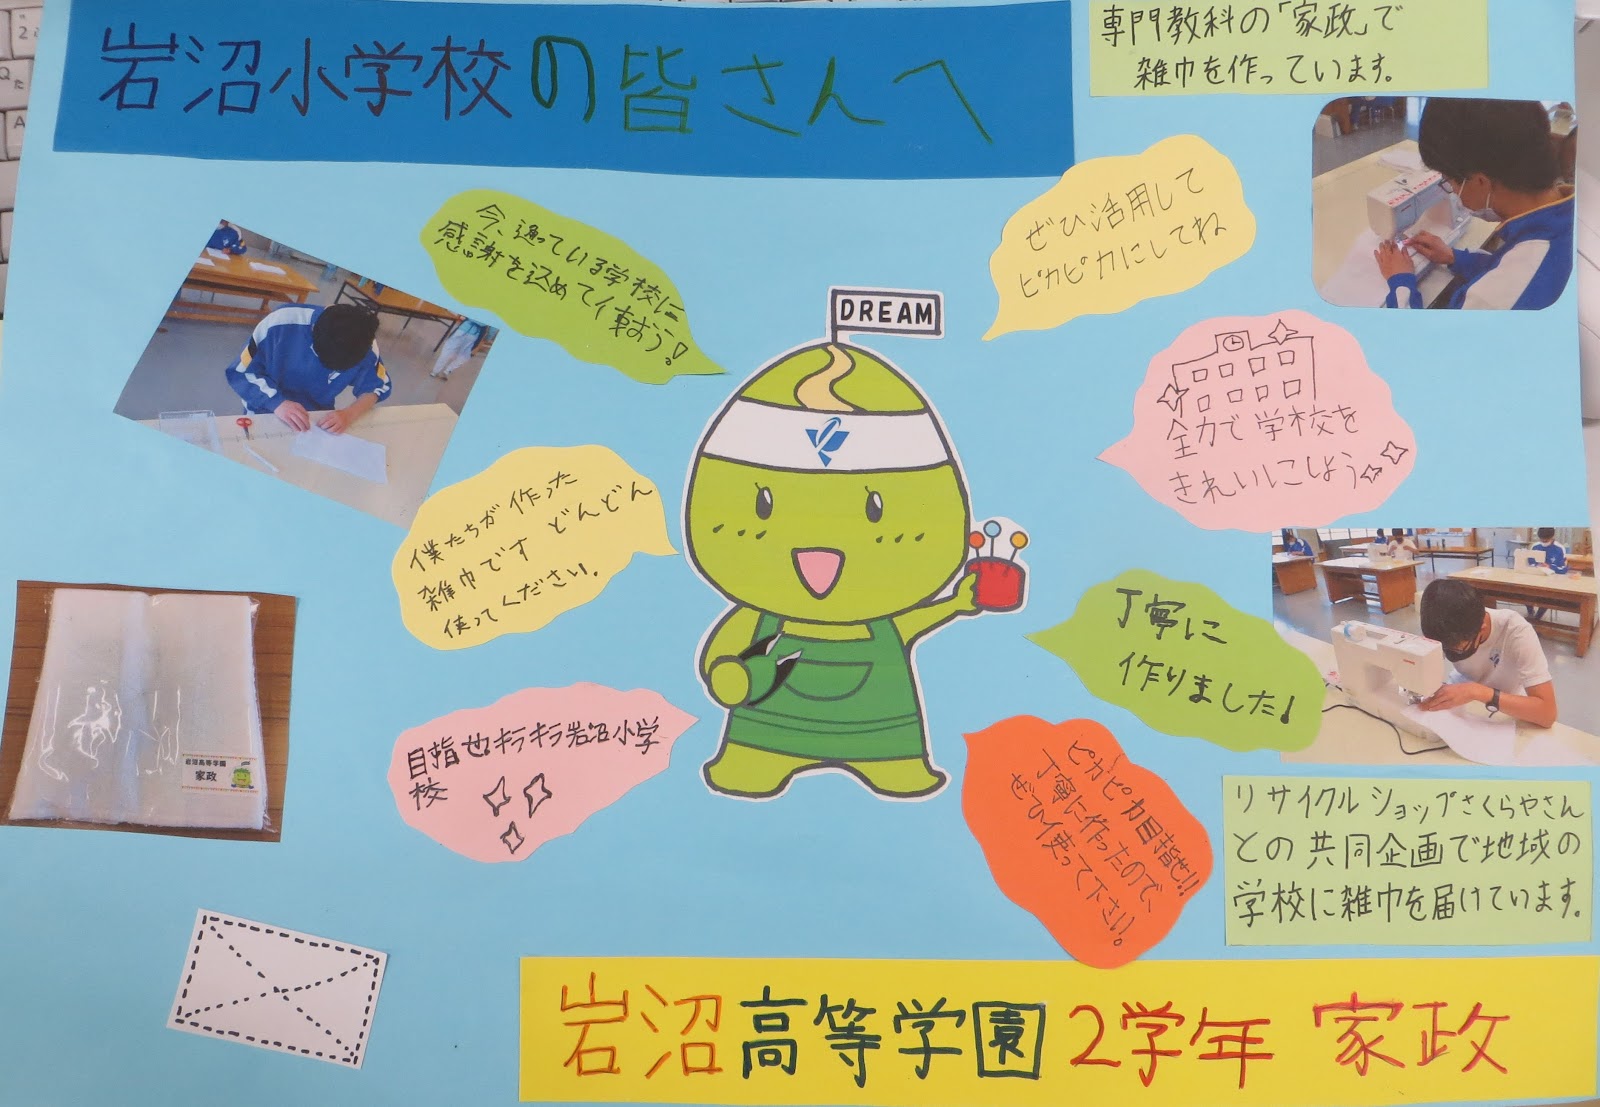 岩沼小学校の皆さんへ
専門教科の「家政」で
雑巾を作っています。
今、通っている学校に
感謝を込めて使おう!
ぜひ活用して
ピカピカにしてね
DREAM
全力で学校を
きれいにしよう
僕たちが作った
雑巾です どんどん
使ってください.
丁寧に
作りました!
目指せキラキラ岩沼小学
校
ピカピカ目指せ!!
丁寧に作ったので、
ぜひ使って下さい!。
岩沼高等学園
家政
リサイクルショップさくらやさん
との共同企画で地域の
学校に雑巾を届けています。
岩沼高等学園2学年 家政